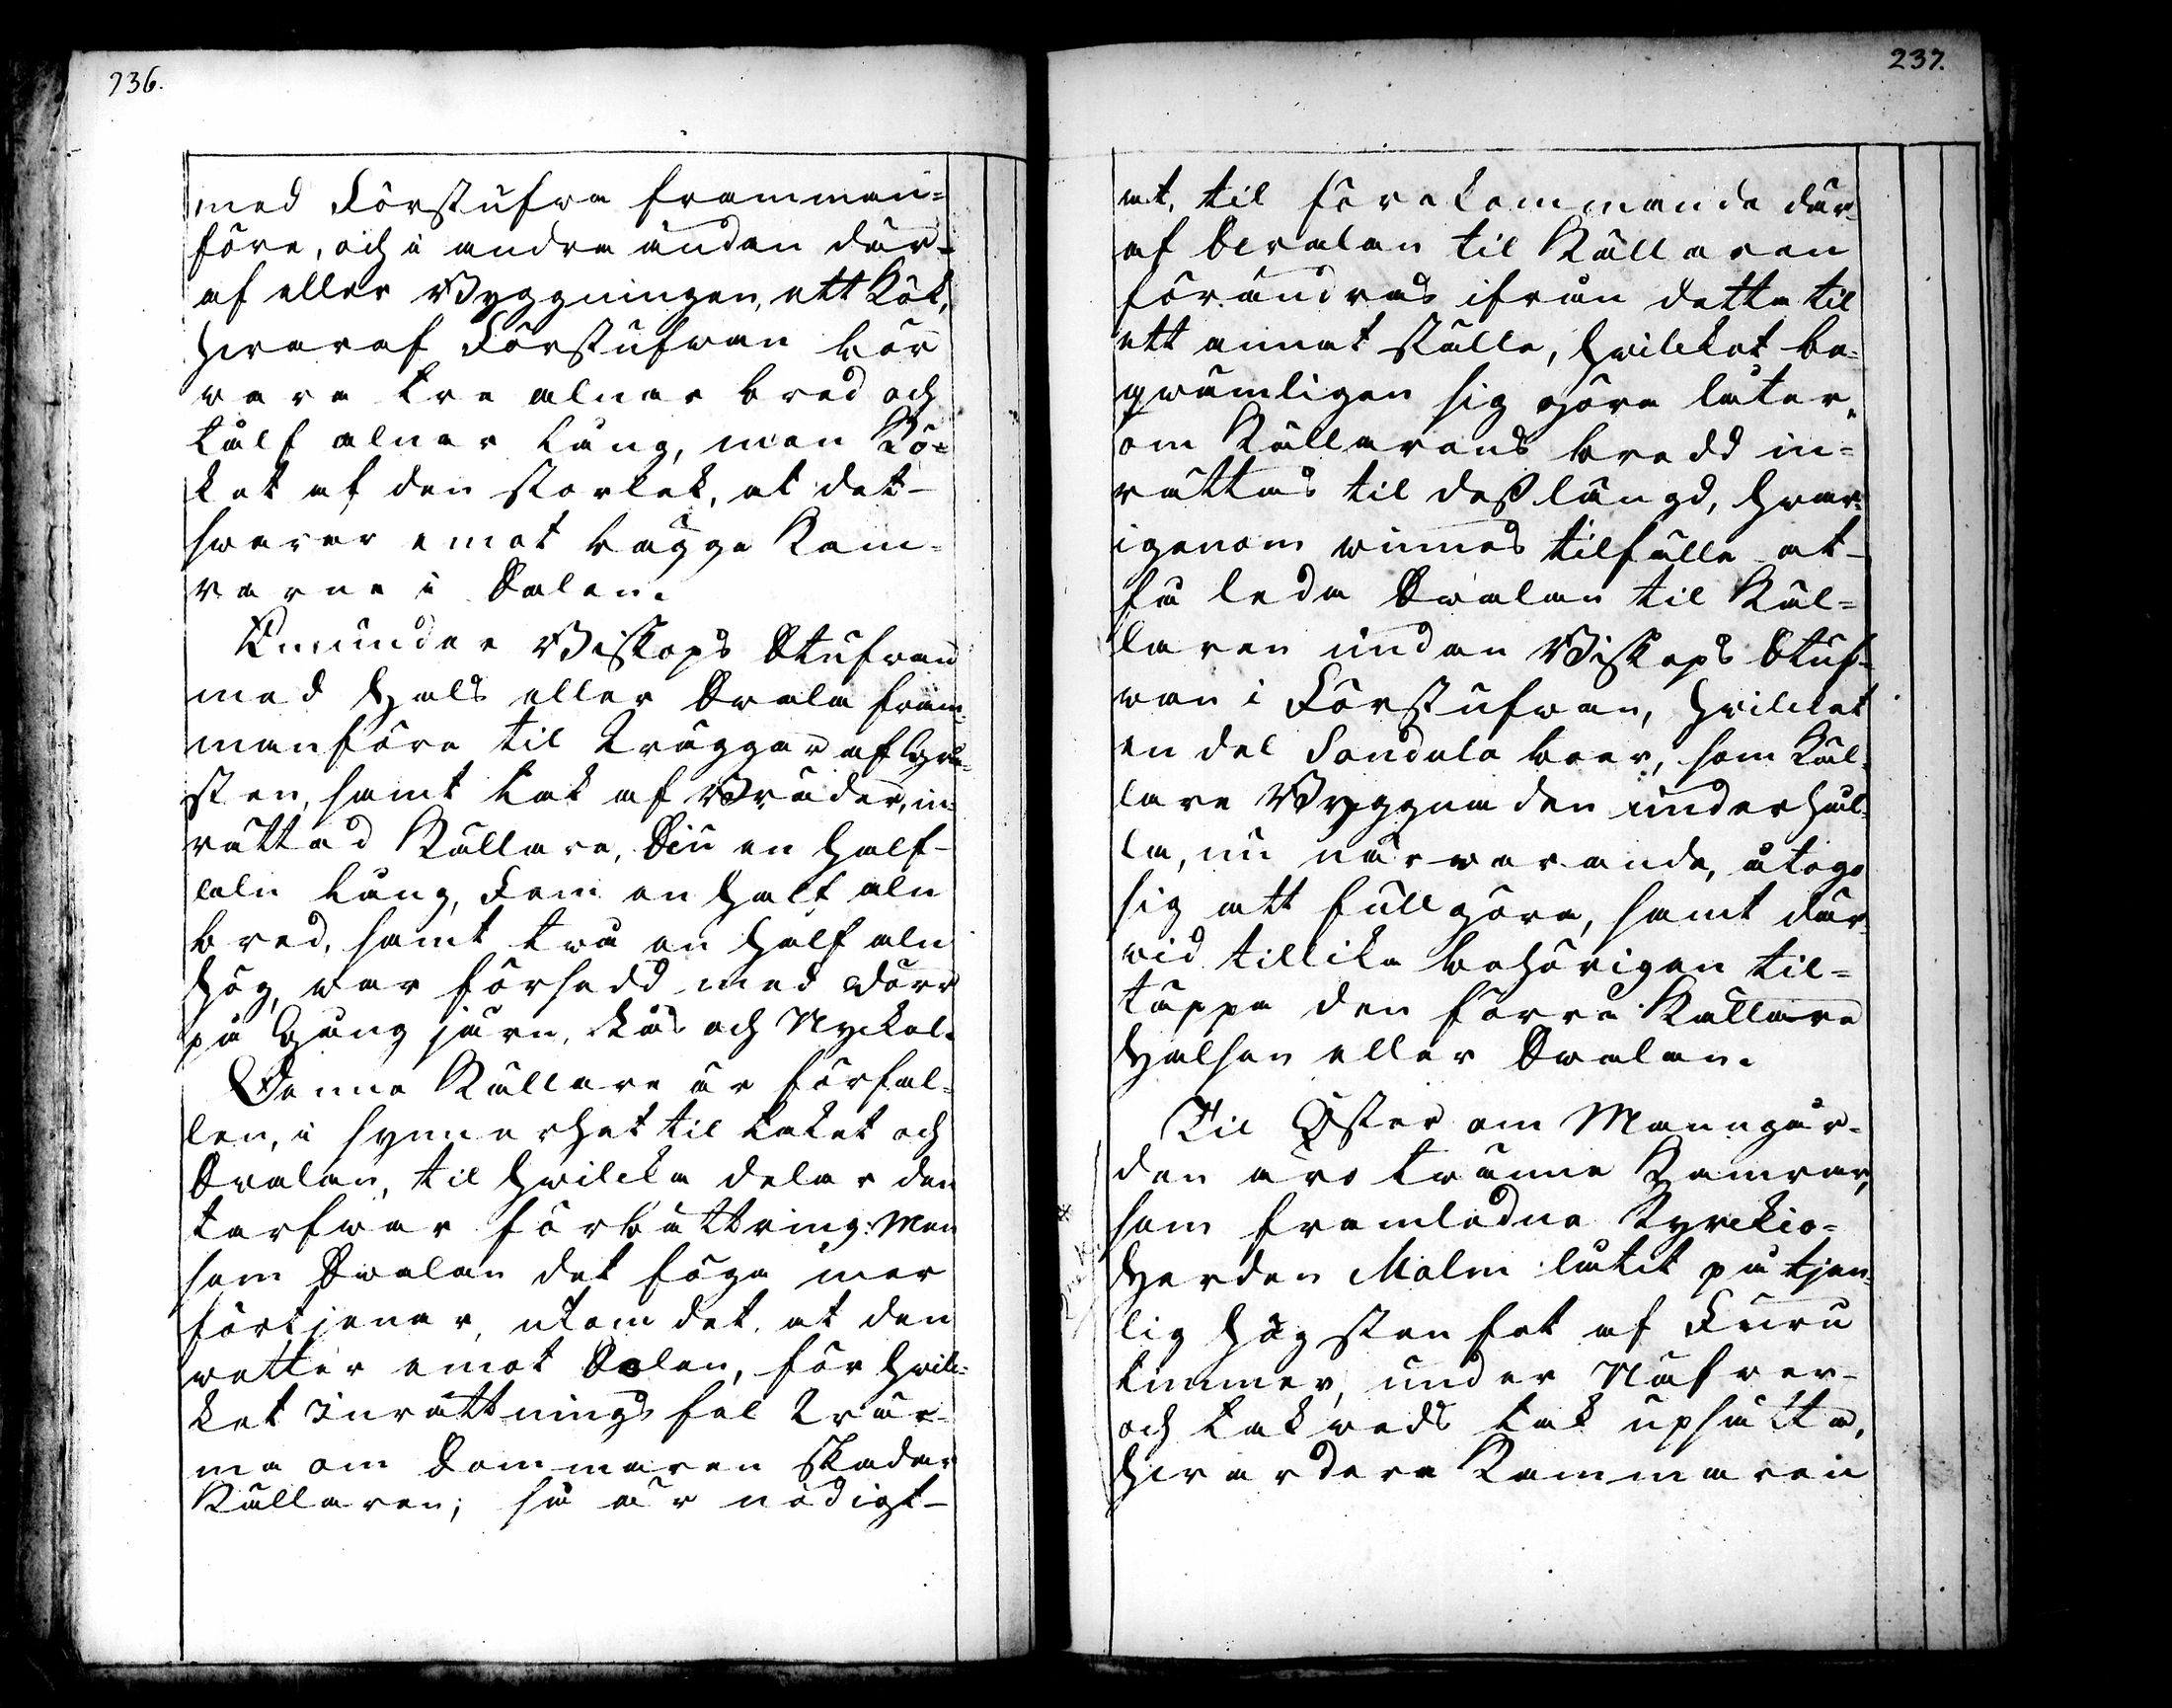 236.
med Förstufwa framman-
före, och i andra ändan där-
af eller Byggningen, ett Kök,
hwaraf Förstufwan bör
vara tre alnar bred och
tålf alnar lång, men Kö-
ket af den storlek, at det
swarar emot bägge Kam-
rarne i Salen.
Inunder Biskops Stufwan
med Hals eller Svala fram-
manföre til Wäggar af Grå-
sten, samt tak af Bräder, in-
rättad Källare, Siu en half
aln lång, Fem en half aln
bred, samt twå en half aln
hög, war försedd med Dörr
på Gång järn, Lås och Nyckel.
Denna Källare är förfal-
len, i synnerhet til taket och
Svalan, til hwilcka delar den
tarfwar förbättring: Men
som Svalan det föga mer
förtjenar, utom det, at den
vetter emot Solen, för hwil-
ket Inrättnings fel Wär-
ma om Sommaren skadar
Källaren; så är nödigt
237.
at, til förekommande där-
af Svalan til Källaren
förändras ifrån detta til
ett annat ställe, hwilcket be-
qwämligen sig göra låter,
om Källarens bredd in-
rättas til dess längd, hwar-
igenom winnes tilfälle at
få leda Svalan til Käl-
laren undan Biskops Stuf-
wan i Förstufwan, hwilcket
en del Sondala boer, som Käl-
lare Byggnaden underhål-
la, nu närwarande, åtogo
sig att fullgöra, samt där-
vid tillika behörigen til-
täppa den förra Källare
Halsen eller Svalan.
Til Öster om Manngår-
den äro twänne Kamrar,
som framledne Kyrckio-
Herden Malm låtit på tjen-
lig hög stenfot af Furu
timmer, under Näfwer
och takweds tak upsätta,
Hwardera Kammaren